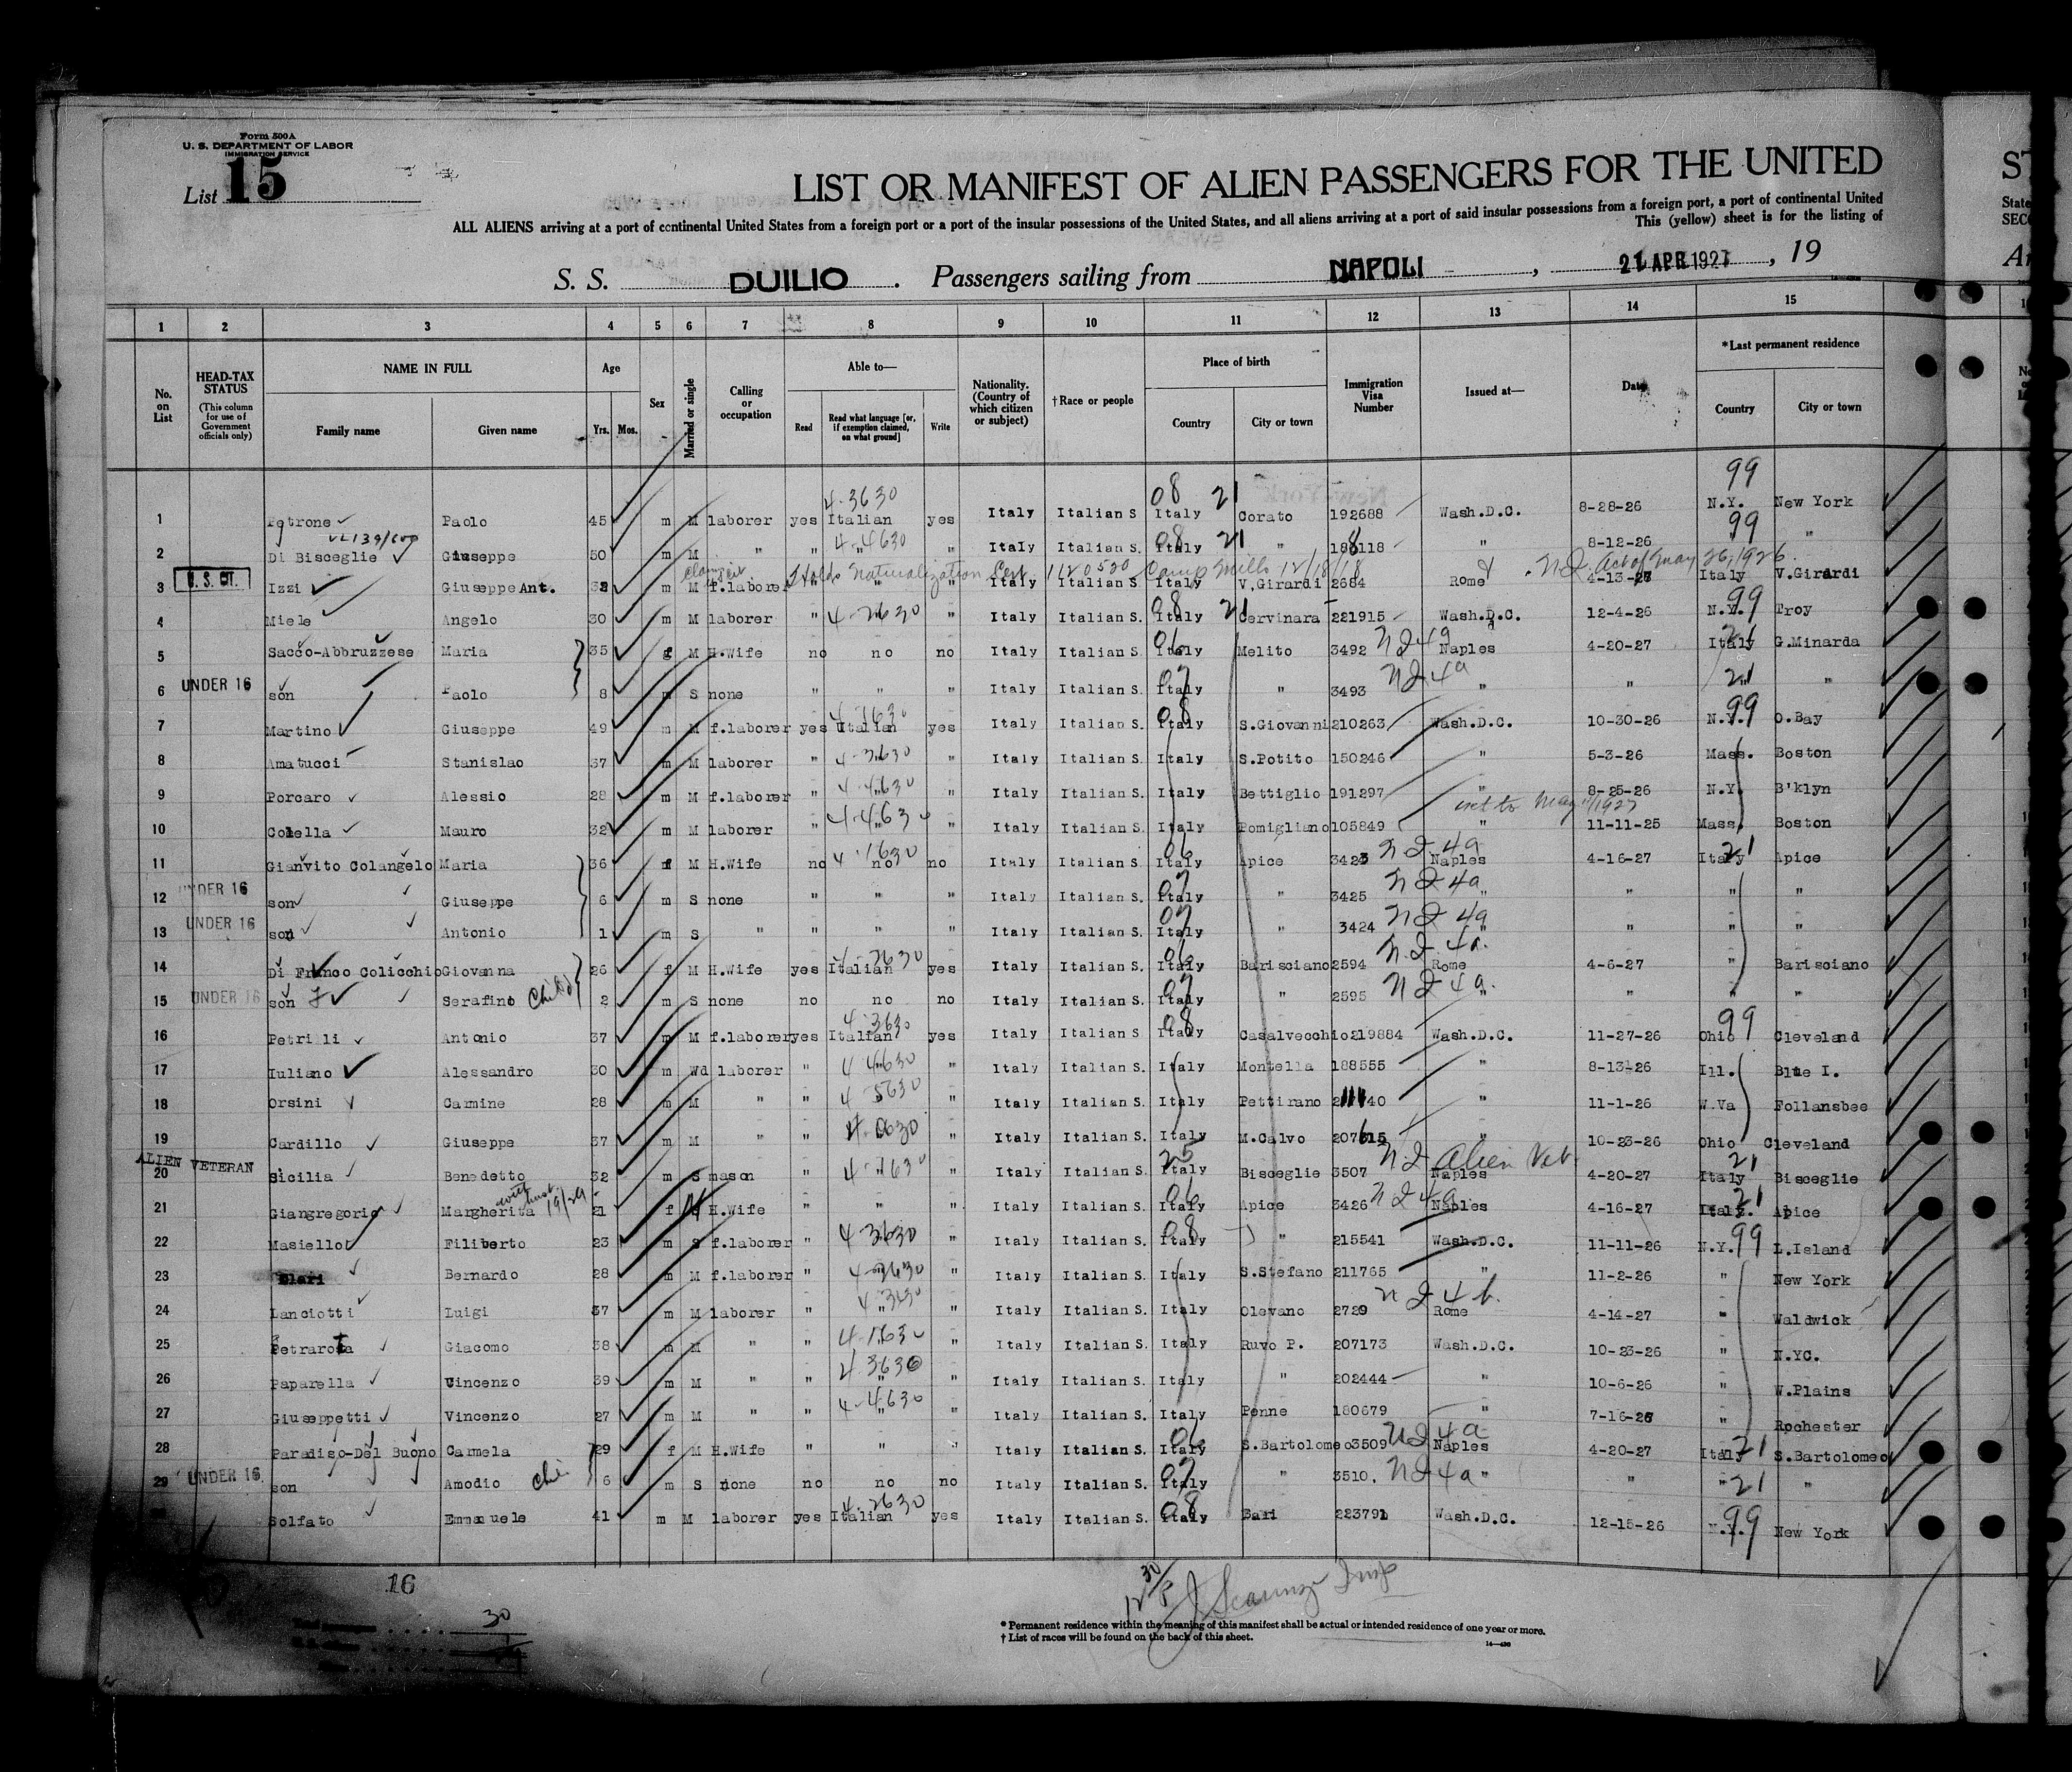 Form 500A
U. S. DEPARTMENT OF LABOR
IMMIGRATION SERVICE
List 15
LIST OR MANIFEST OF ALIEN PASSENGERS FOR THE UNITED
ALL ALIENS arriving at a port of continental United States from a foreign port or a port of the insular possessions of the United States, and all aliens arriving at a port of said insular possessions from a foreign port, a port of continental United
This (yellow) sheet is for the listing of
S. S. DUILIO . Passengers sailing from NAPOLI , 21 APR 1927 , 19
1 2 3 4 5 6 7 8 9 10 11 12 13 14 15
No. on List
HEAD-TAX STATUS (This column for use of Government officials only)
NAME IN FULL
Family name
Given name
Age
Yrs.
Mos.
Sex
Married or single
Calling or occupation
Able to—
Read
Read what language [or, if exemption claimed, on what ground]
Write
Nationality. (Country of which citizen or subject)
†Race or people
Place of birth
Country
City or town
Immigration Visa Number
Issued at—
Date
*Last permanent residence
Country
City or town
4-3630 08 21 99
1 Petrone Paolo 45 m M laborer yes Italian yes Italy Italian S Italy Corato 192688 Wash.D.C. 8-28-26 N.Y. New York
4-4630 08 21 99
2 Di Bisceglie Giuseppe 50 m M " " " " Italy Italian S. Italy " 188118 " 8-12-26 "
Holds Naturalization Cert 1120520 Camp Mills 12/18/18 Act of May 26, 1926.
U. S. CIT.
3 Izzi Giuseppe Ant. m M f.laborer " " " Italy Italian S. Italy V.Girardi 2684 Rome 4-13-27 Italy V.Girardi
4 Miele Angelo 30 m M laborer " 4-2630 " Italy Italian S. Italy 08 21 Cervinara 221915 Wash.D.C. 12-4-26 N.Y. 99 Troy
5 Sacco-Abbruzzese Maria 35 f M H.Wife no no no Italy Italian S. Italy 06 Melito 3492 Naples 4-20-27 Italy 21 G.Minarda
UNDER 16
6 son Paolo 8 m S none " " " Italy Italian S. Italy 07 " 3493 " " 21 "
7 Martino Giuseppe 49 m M f.laborer yes Italian yes Italy Italian S. Italy 08 S.Giovanni 210263 Wash.D.C. 10-30-26 N.Y. 99 O.Bay
8 Amatucci Stanislao 37 m M laborer " 4-3630 " Italy Italian S. Italy S.Potito 150246 " 5-3-26 Mass. Boston
9 Porcaro Alessio 28 m M f.laborer " 4-4630 " Italy Italian S. Italy Bettiglio 191297 " 8-25-26 N.Y. B'klyn
10 Colella Mauro 32 m M laborer " " " Italy Italian S. Italy Pomigliano 105849 " 11-11-25 Mass. Boston
11 Gianvito Colangelo Maria 36 f M H.Wife no no no Italy Italian S. Italy 06 Apice 3423 Naples 4-16-27 Italy 21 Apice
UNDER 16
12 son Giuseppe 6 m S none " " " Italy Italian S. Italy 07 " 3425 " " " "
UNDER 16
13 son Antonio 1 m S " " " " Italy Italian S. Italy 07 " 3424 " " " "
14 Di Franco Colicchio Giovanna 26 f M H.Wife yes Italian yes Italy Italian S. Italy 06 Barisciano 2594 Rome 4-6-27 " Barisciano
UNDER 16
15 son Serafino Child 2 m S none no no no Italy Italian S. Italy 07 " 2595 " " " "
16 Petrilli Antonio 37 m M f.laborer yes Italian yes Italy Italian S Italy 08 Casalvecchio 219884 Wash.D.C. 11-27-26 Ohio 99 Cleveland
17 Iuliano Alessandro 30 m Wd laborer " 4 4630 " Italy Italian S. Italy Montella 188555 " 8-13-26 Ill. Blue I.
18 Orsini Carmine 28 m M " " 4 5630 " Italy Italian S. Italy Pettirano " 11-1-26 W.Va Follansbee
19 Cardillo Giuseppe 37 m M " " " Italy Italian S. Italy M.Calvo 207615 " 10-23-26 Ohio Cleveland
ALIEN VETERAN
20 Sicilia Benedetto 32 m S mason " " Italy Italian S. Italy 25 Bisceglie 3507 Naples Alien Vet. 4-20-27 Italy 21 Bisceglie
21 Giangregorio Margherita 21 f H.Wife " " " Italy Italian S. Italy 06 Apice 3426 Naples 4-16-27 Italy. 21 Apice
22 Masiello Filiberto 23 m S f.laborer " 4-3630 " Italy Italian S. Italy 08 " 215541 Wash.D.C. 11-11-26 N.Y. 99 L.Island
23 Bernardo 28 m M f.laborer " 4-2630 " Italy Italian S. Italy S.Stefano 211765 " 11-2-26 " New York
24 Lanciotti Luigi 37 m M laborer " " " Italy Italian S. Italy Olevano 2729 Rome 4-14-27 " Waldwick
25 Petrarota Giacomo 38 m M " " 4-1630 " Italy Italian S. Italy Ruvo P. 207173 Wash.D.C. 10-23-26 " N.YC.
26 Paparella Vincenzo 39 m M " " 4 3630 " Italy Italian S. Italy " 202444 " 10-6-26 " W.Plains
27 Giuseppetti Vincenzo 27 m M " " 4-4630 " Italy Italian S. Italy Penne 180679 " 7-16-26 " Rochester
28 Paradiso-Del Buono Carmela 29 f M H.Wife " " " Italy Italian S. Italy 06 S.Bartolomeo 3509 Naples 4-20-27 Italy 21 S.Bartolomeo
UNDER 16
29 son Amodio 6 m S none no no no Italy Italian S. Italy 07 " 3510. " " " 21 "
Solfato Emanuele 41 m M laborer yes Italian 4-2630 yes Italy Italian S. Italy 08 Bari 223791 Wash.D.C. 12-15-26 N.Y. 99 New York
16
30
* Permanent residence within the meaning of this manifest shall be actual or intended residence of one year or more.
† List of races will be found on the back of this sheet.